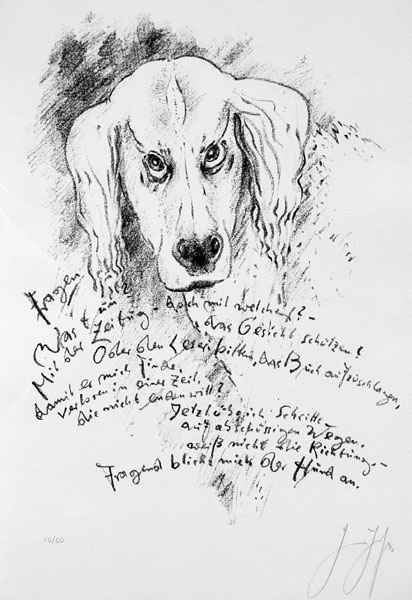 Fragen
Was tun? - Doch mit welchem? -
Mit der Zeitung das Gesicht schützen?
Oder den Leser bitten, das Buch aufzuschlagen,
damit er mich finde,
verloren in einer Zeit,
die nicht enden will?
Jetzt üb ich Schritte
auf abschüssigen Wegen,
weiß nicht die Richtung, -
Fragend blickt mich der Hund an.
16/60